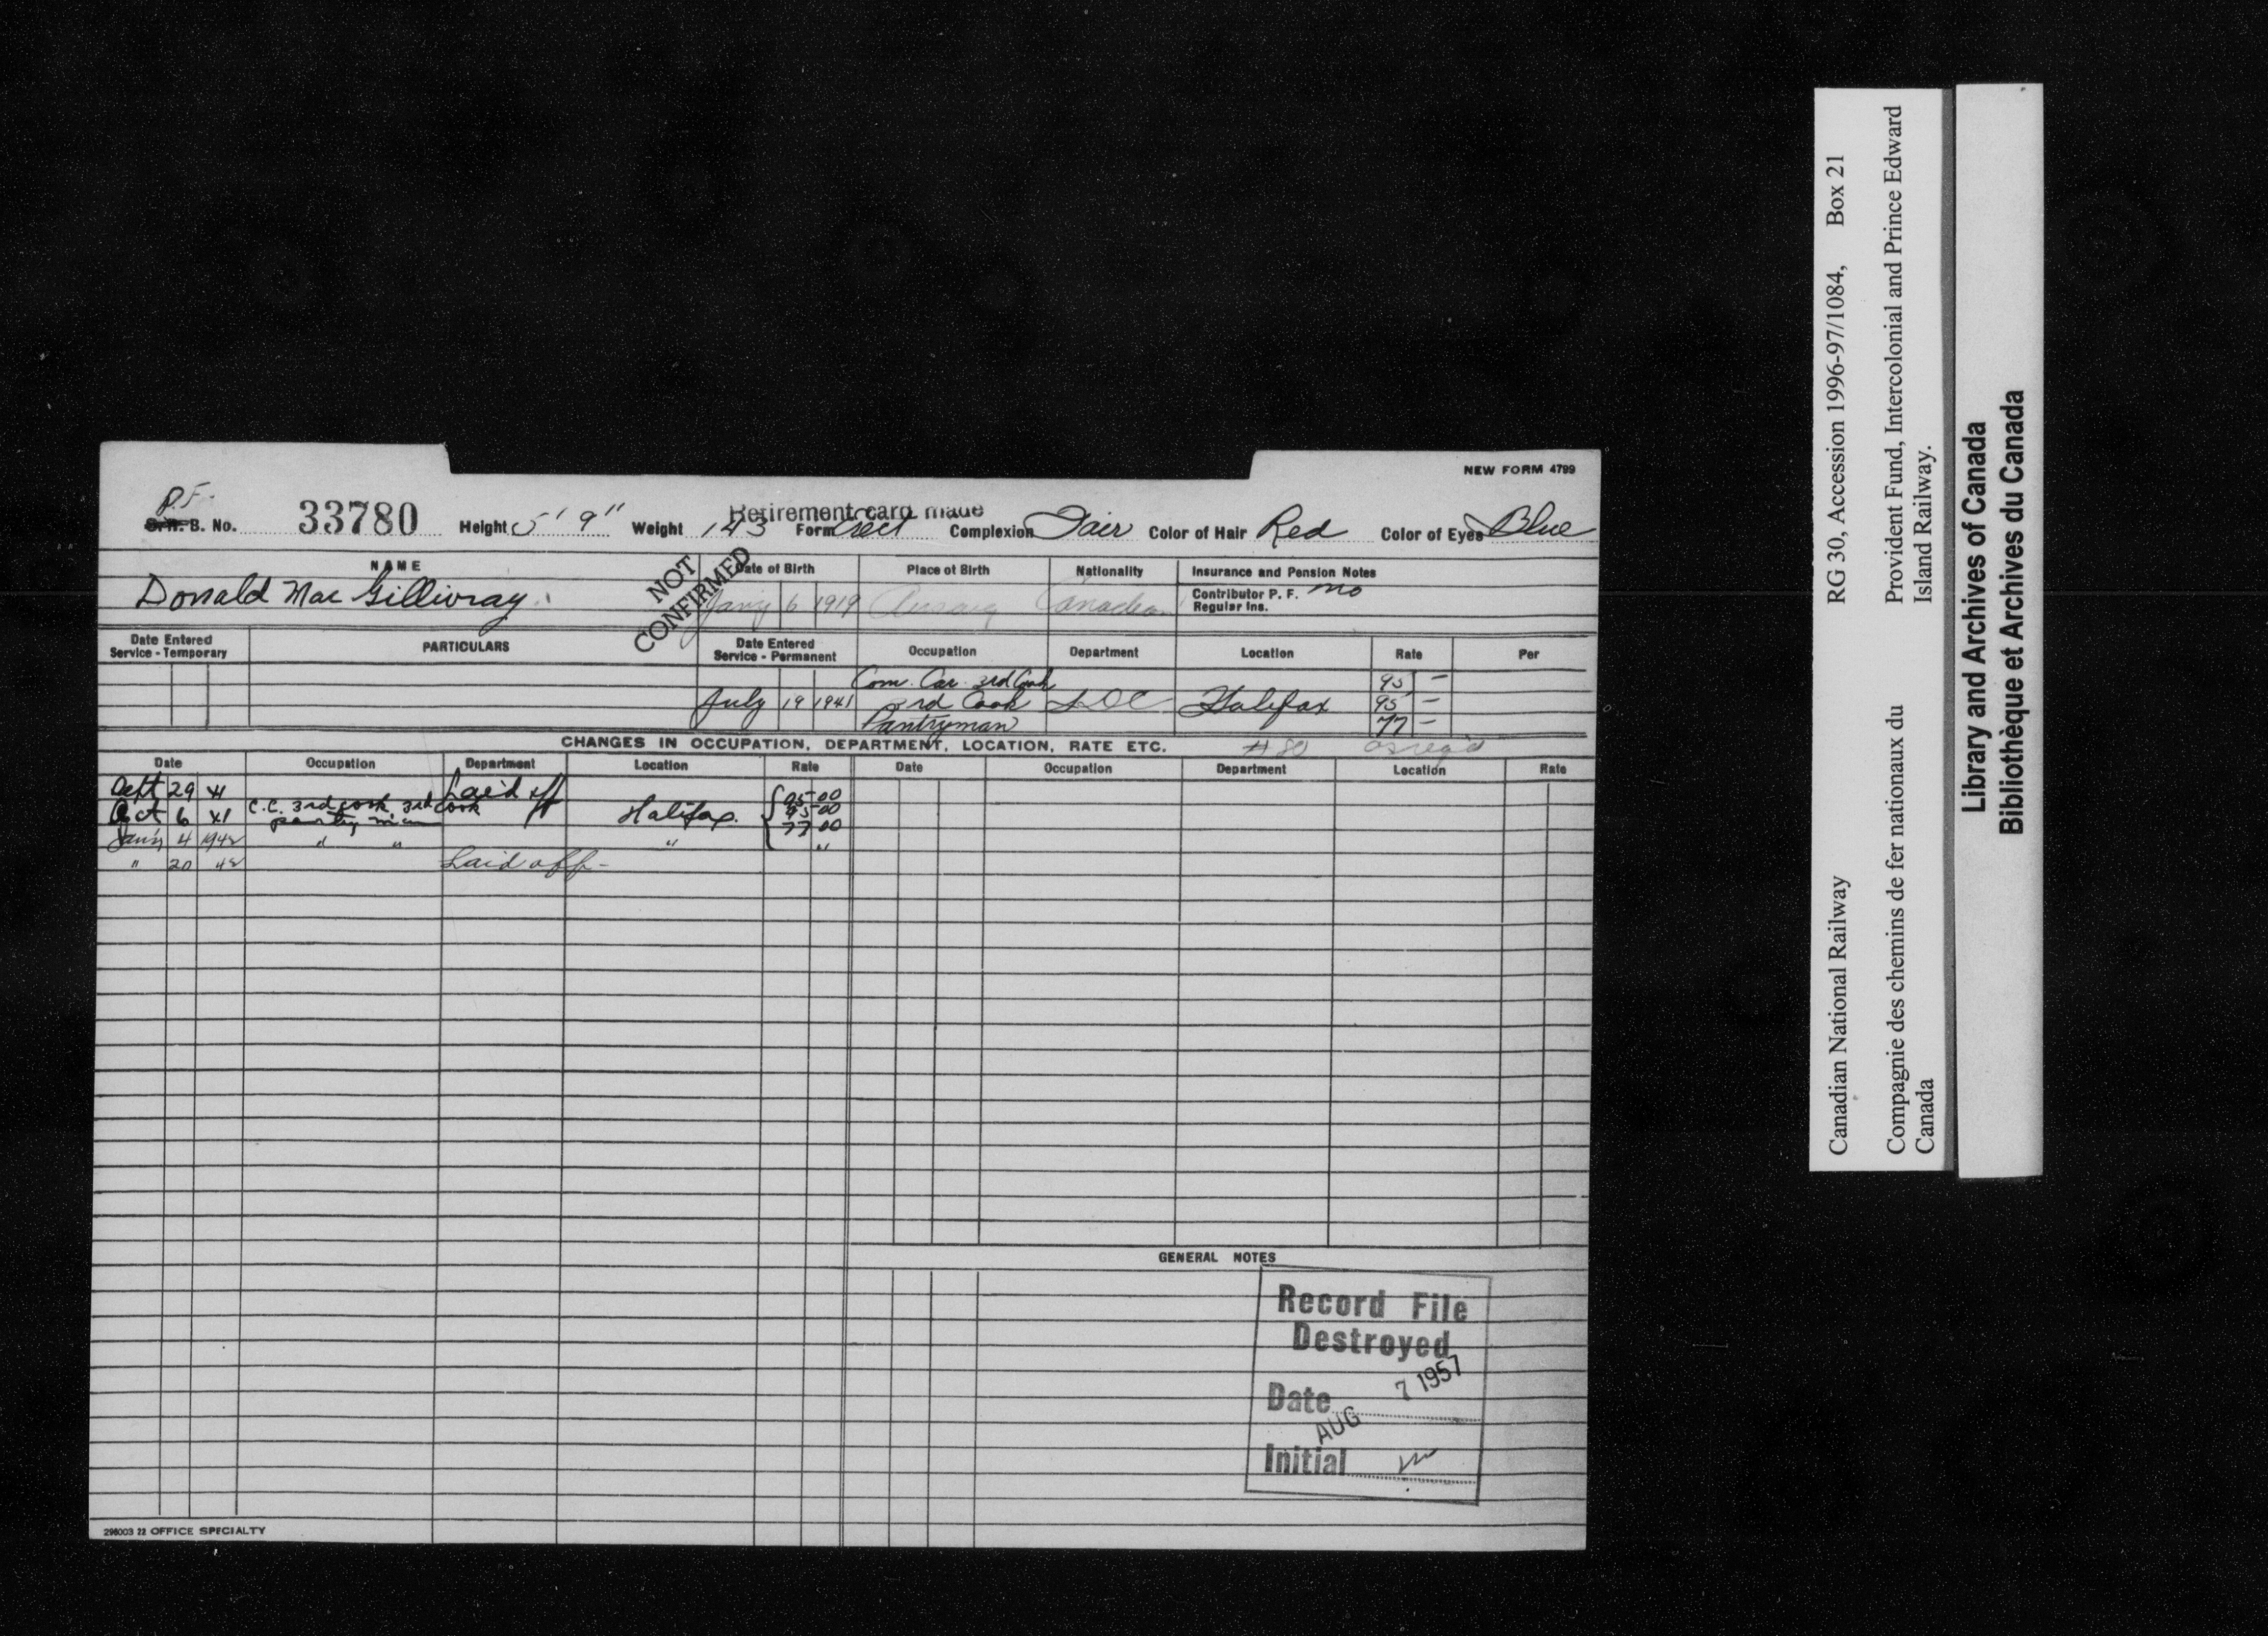 NEW FORM 4799
P.F.
S.R. B. No. 33780 Height 5' 9" Weight 143 Form Erect Complexion Fair Color of Hair Red Color of Eyes Blue
Retirement card made
NOT CONFIRMED
NAME Date of Birth Place of Birth Nationality Insurance and Pension Notes
Donald MacGillivray Jan'y 6 1919 Canadian Contributor P. F. no
Regular Ins.
Date Entered Service - Temporary PARTICULARS Date Entered Service - Permanent Occupation Department Location Rate Per
Com. Car 3rd Cook 95 -
July 19 1941 3rd Cook Halifax 95 -
Pantryman 77 -
CHANGES IN OCCUPATION, DEPARTMENT, LOCATION, RATE ETC. # 80 as req'd
Date Occupation Department Location Rate Date Occupation Department Location Rate
Sept 29 41 Laid off
Oct 6 41 C.C. 3rd cook 3rd cook Halifax. 95 00
pantry man 95 00
77 00
Jan'y 4 1942 " " " "
" 20 42 Laid off -
GENERAL NOTES
Record File
Destroyed
Date AUG 7 1957
Initial
298003 22 OFFICE SPECIALTY
Canadian National Railway RG 30, Accession 1996-97/1084, Box 21
Compagnie des chemins de fer nationaux du Canada
Provident Fund, Intercolonial and Prince Edward Island Railway.
Library and Archives of Canada
Bibliothèque et Archives du Canada